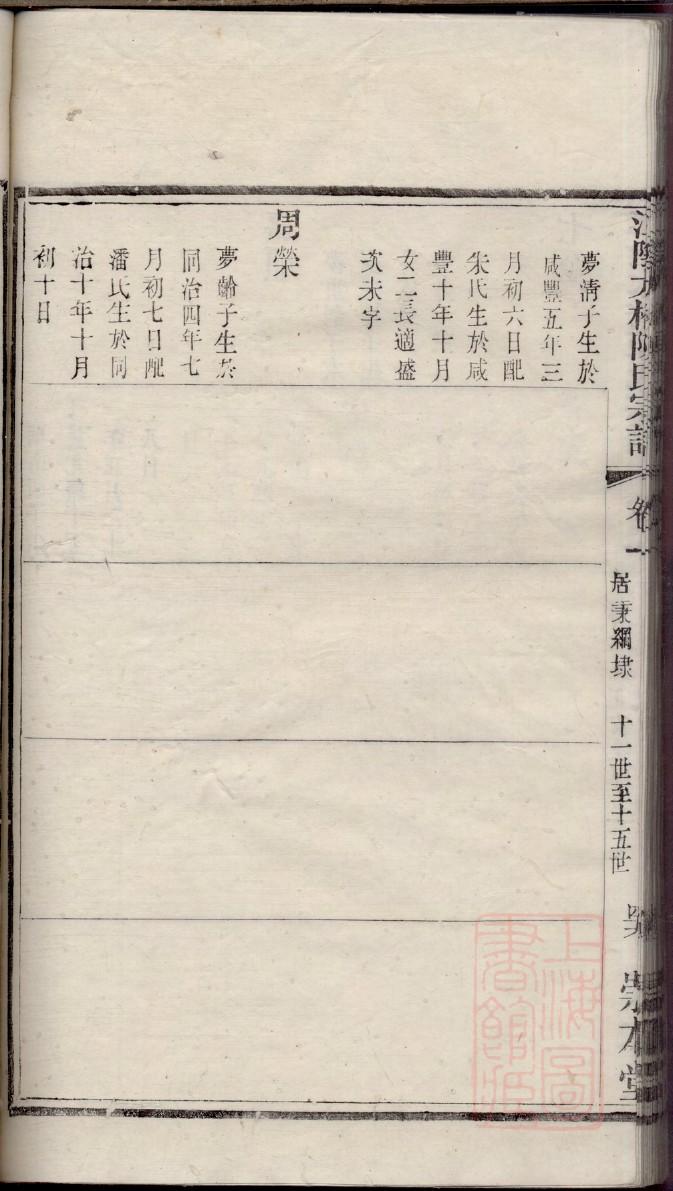 夢淸子生於
咸豐五年三
月初六日配
朱氏生於咸
豐十年十月
女二長適盛
次未字
周榮
夢齡子生於
同治四年七
月初七日配
潘氏生於同
治十年十月
初十日
陳氏宗譜
卷一
居秉綱埭
十一世至十五世
崇本堂
上海圖
書館藏